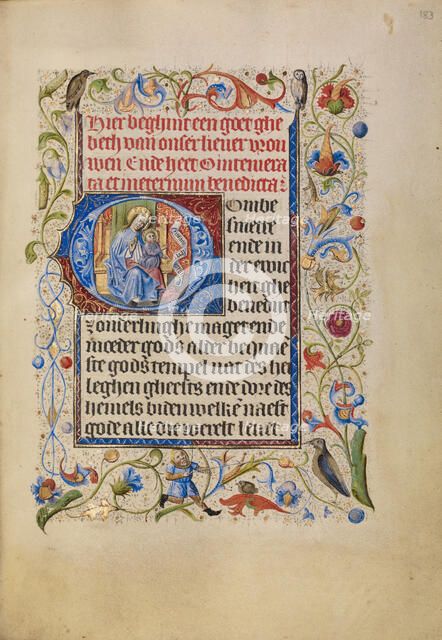 183
Hier beghint een goet ghe
beth van onser liever vrou
wen Ende heet O intemera
ta et in eternum benedicta:
Ombe
smette
ende in
der ewic
heit ghe
benedijt
Zonderlinghe maget ende
moeder gods alder bequa
ste gods tempel uut des hei
leghen gheests ende dore des
hemels biden welken naest
gode alle die werelt levet